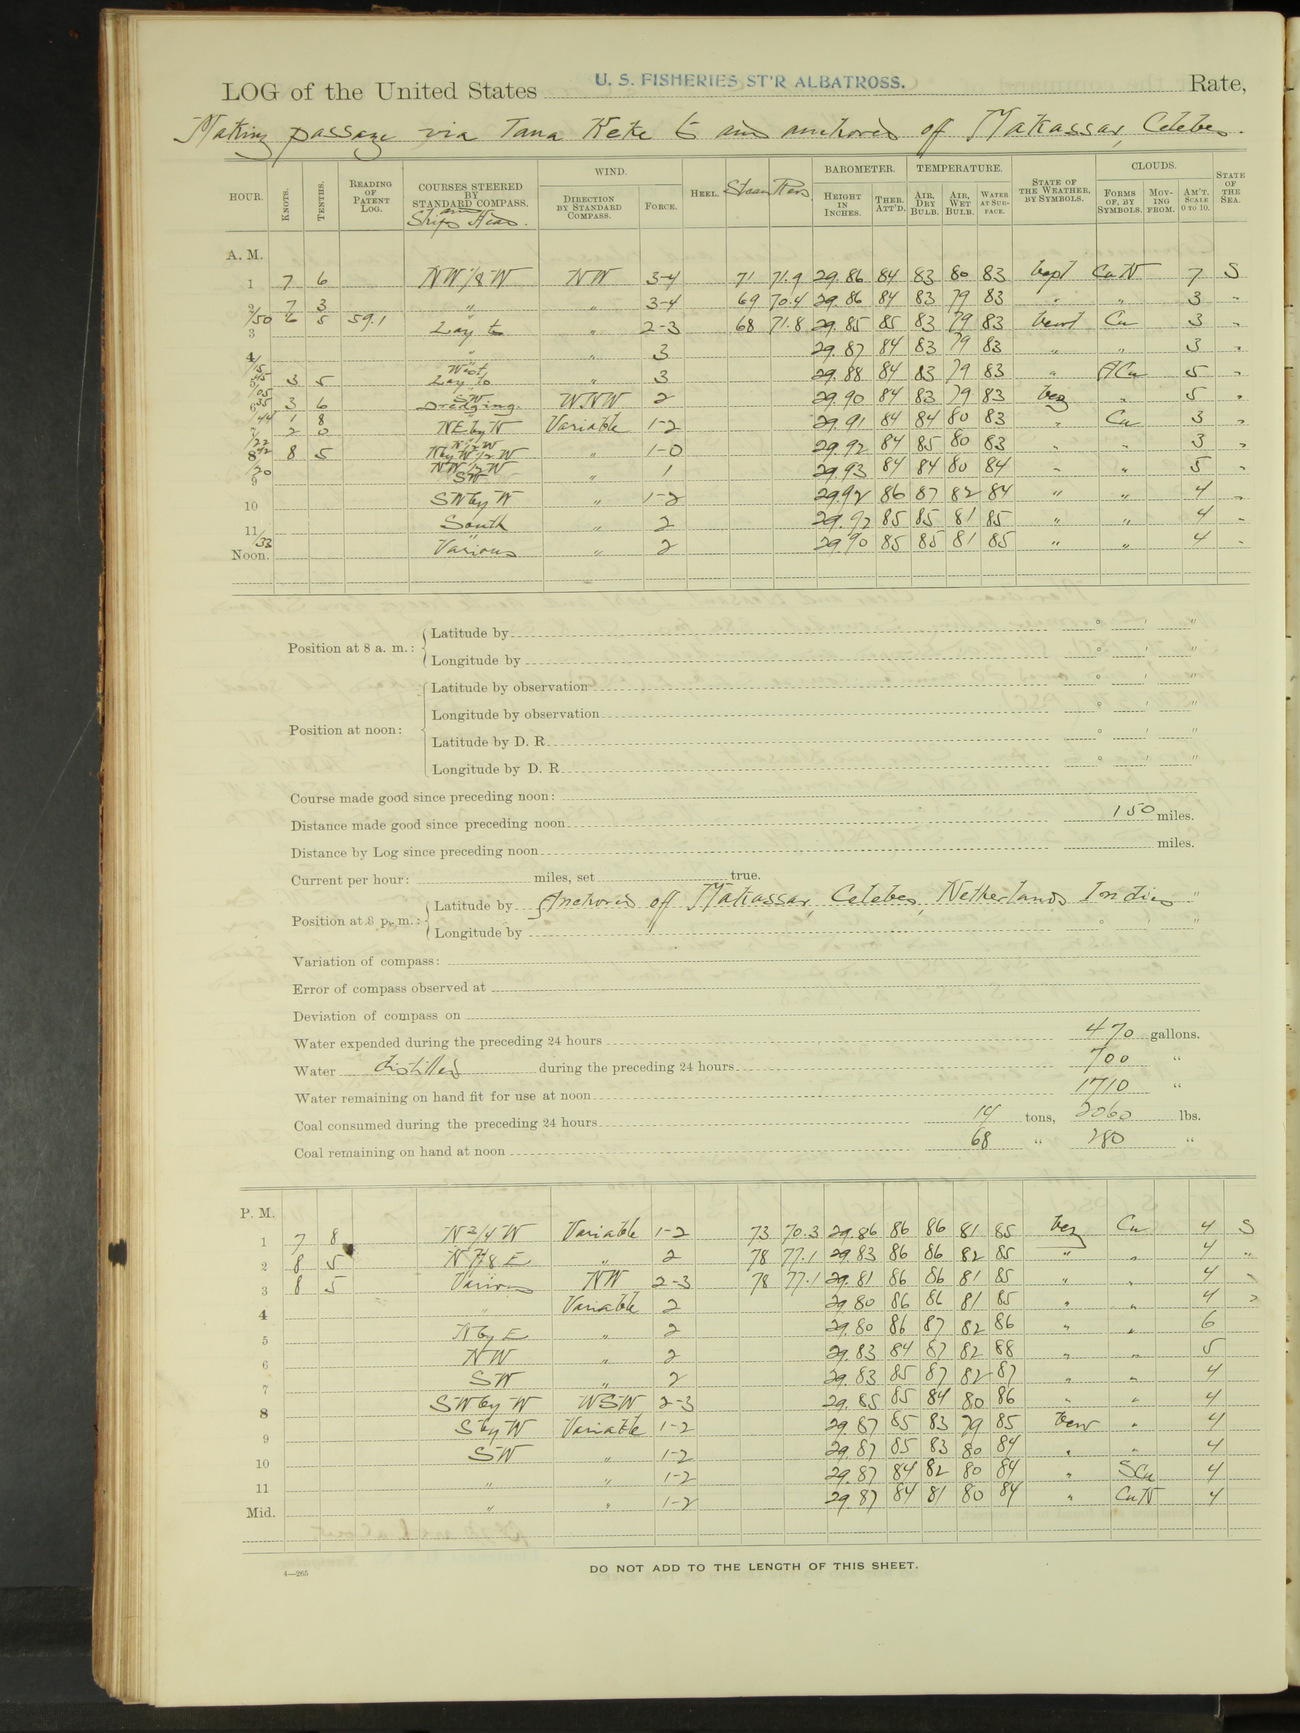 LOG of the United States U. S. FISHERIES ST'R ALBATROSS. Rate,
Making passage via Tana Keke to and anchored off Makassar, Celebes.
HOUR. KNOTS. TENTHS. READING OF PATENT LOG. COURSES STEERED BY STANDARD COMPASS. and Ships Head. WIND. DIRECTION BY STANDARD COMPASS. FORCE. HEEL. Steam Revs BAROMETER. HEIGHT IN INCHES. THER. ATT'D. TEMPERATURE. AIR, DRY BULB. AIR, WET BULB. WATER AT SURFACE. STATE OF THE WEATHER, BY SYMBOLS. CLOUDS. FORMS OF, BY SYMBOLS. MOVING FROM. AM'T. SCALE 0 TO 10. STATE OF THE SEA.
A. M.
1 7 6 NW 1/8 W NW 3-4 71 71.9 29.86 84 83 80 83 Cu N 7 S
2 7 3 " " 3-4 69 70.4 29.86 84 83 79 83 " " 3 "
/50 3 6 5 59.1 " Lay to " 2-3 68 71.8 29.85 85 83 79 83 Cu 3 "
4 " " 3 29.87 84 83 79 83 " " 3 "
/15 5 3 5 West Lay to " 3 29.88 84 83 79 83 " A Cu 5 "
6 3 6 SW Dredging. WNW 2 29.90 84 83 79 83 bcz " 5 "
/44 7 1 8 2 0 NE by N Variable 1-2 29.91 84 84 80 83 " Cu 3 "
8 8 5 N by W 1/2 W " 1-0 29.92 84 85 80 83 " " 3 "
/20 9 NW 1/2 W SW " 1 29.93 84 84 80 84 " " 5 "
10 SW by W " 1-2 29.92 86 87 82 84 " " 4 "
11 South " 2 29.92 85 85 81 85 " " 4 "
/33 Noon. Various " 2 29.90 85 85 81 85 " " 4 "
Position at 8 a. m.: Latitude by ° ' "
Longitude by ° ' "
Position at noon: Latitude by observation ° ' "
Longitude by observation ° ' "
Latitude by D. R. ° ' "
Longitude by D. R. ° ' "
Course made good since preceding noon:
Distance made good since preceding noon 150 miles.
Distance by Log since preceding noon miles.
Current per hour: miles, set true.
Position at 8 p. m.: Latitude by Anchored off Makassar, Celebes, Netherlands Indies "
Longitude by ° ' "
Variation of compass:
Error of compass observed at
Deviation of compass on
Water expended during the preceding 24 hours 470 gallons.
Water distilled during the preceding 24 hours 700 "
Water remaining on hand fit for use at noon 1710 "
Coal consumed during the preceding 24 hours 14 tons, 2060 lbs.
Coal remaining on hand at noon 68 " 280 "
P. M.
1 7 8 N 3/4 W Variable 1-2 73 70.3 29.86 86 86 81 85 bcz Cu 4 S
2 8 5 N 7/8 E " 2 78 77.1 29.83 86 86 82 85 " " 4 "
3 8 5 Various NW 2-3 78 77.1 29.81 86 86 81 85 " " 4 "
4 " Variable 2 29.80 86 86 81 85 " " 4 "
5 N by E " 2 29.80 86 87 82 86 " " 6
6 NW " 2 29.83 84 87 82 88 " " 5
7 SW " 2 29.83 85 87 82 87 " " 4
8 SW by W WSW 2-3 29.85 85 84 80 86 " " 4
9 S by W Variable 1-2 29.87 85 83 79 85 " 4
10 SW " 1-2 29.87 85 83 80 84 " " 4
11 " " 1-2 29.87 84 82 80 84 " S Cu 4
Mid. " " 1-2 29.87 84 81 80 84 " Cu N 4
4—265
DO NOT ADD TO THE LENGTH OF THIS SHEET.